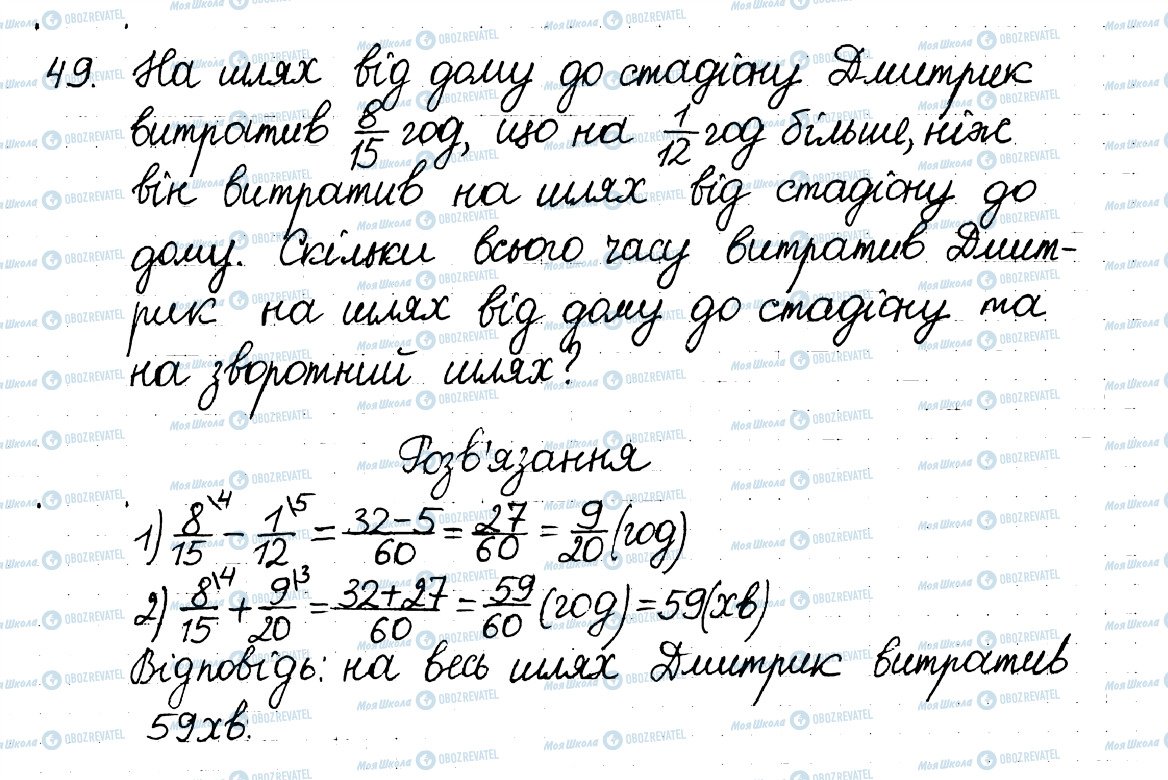 49. На шлях від дому до стадіону Дмитрик
витратив 8/15 год, що на 1/12 год більше, ніж
він витратив на шлях від стадіону до
дому. Скільки всього часу витратив Дмит-
рик на шлях від дому до стадіону та
на зворотний шлях?
Розв'язання
1) 8/15\4 - 1/12\5 = 32-5/60 = 27/60 = 9/20 (год)
2) 8/15\4 + 9/20\3 = 32+27/60 = 59/60 (год) = 59(хв)
Відповідь: на весь шлях Дмитрик витратив
59хв.
МояШкола OBOZREVATEL